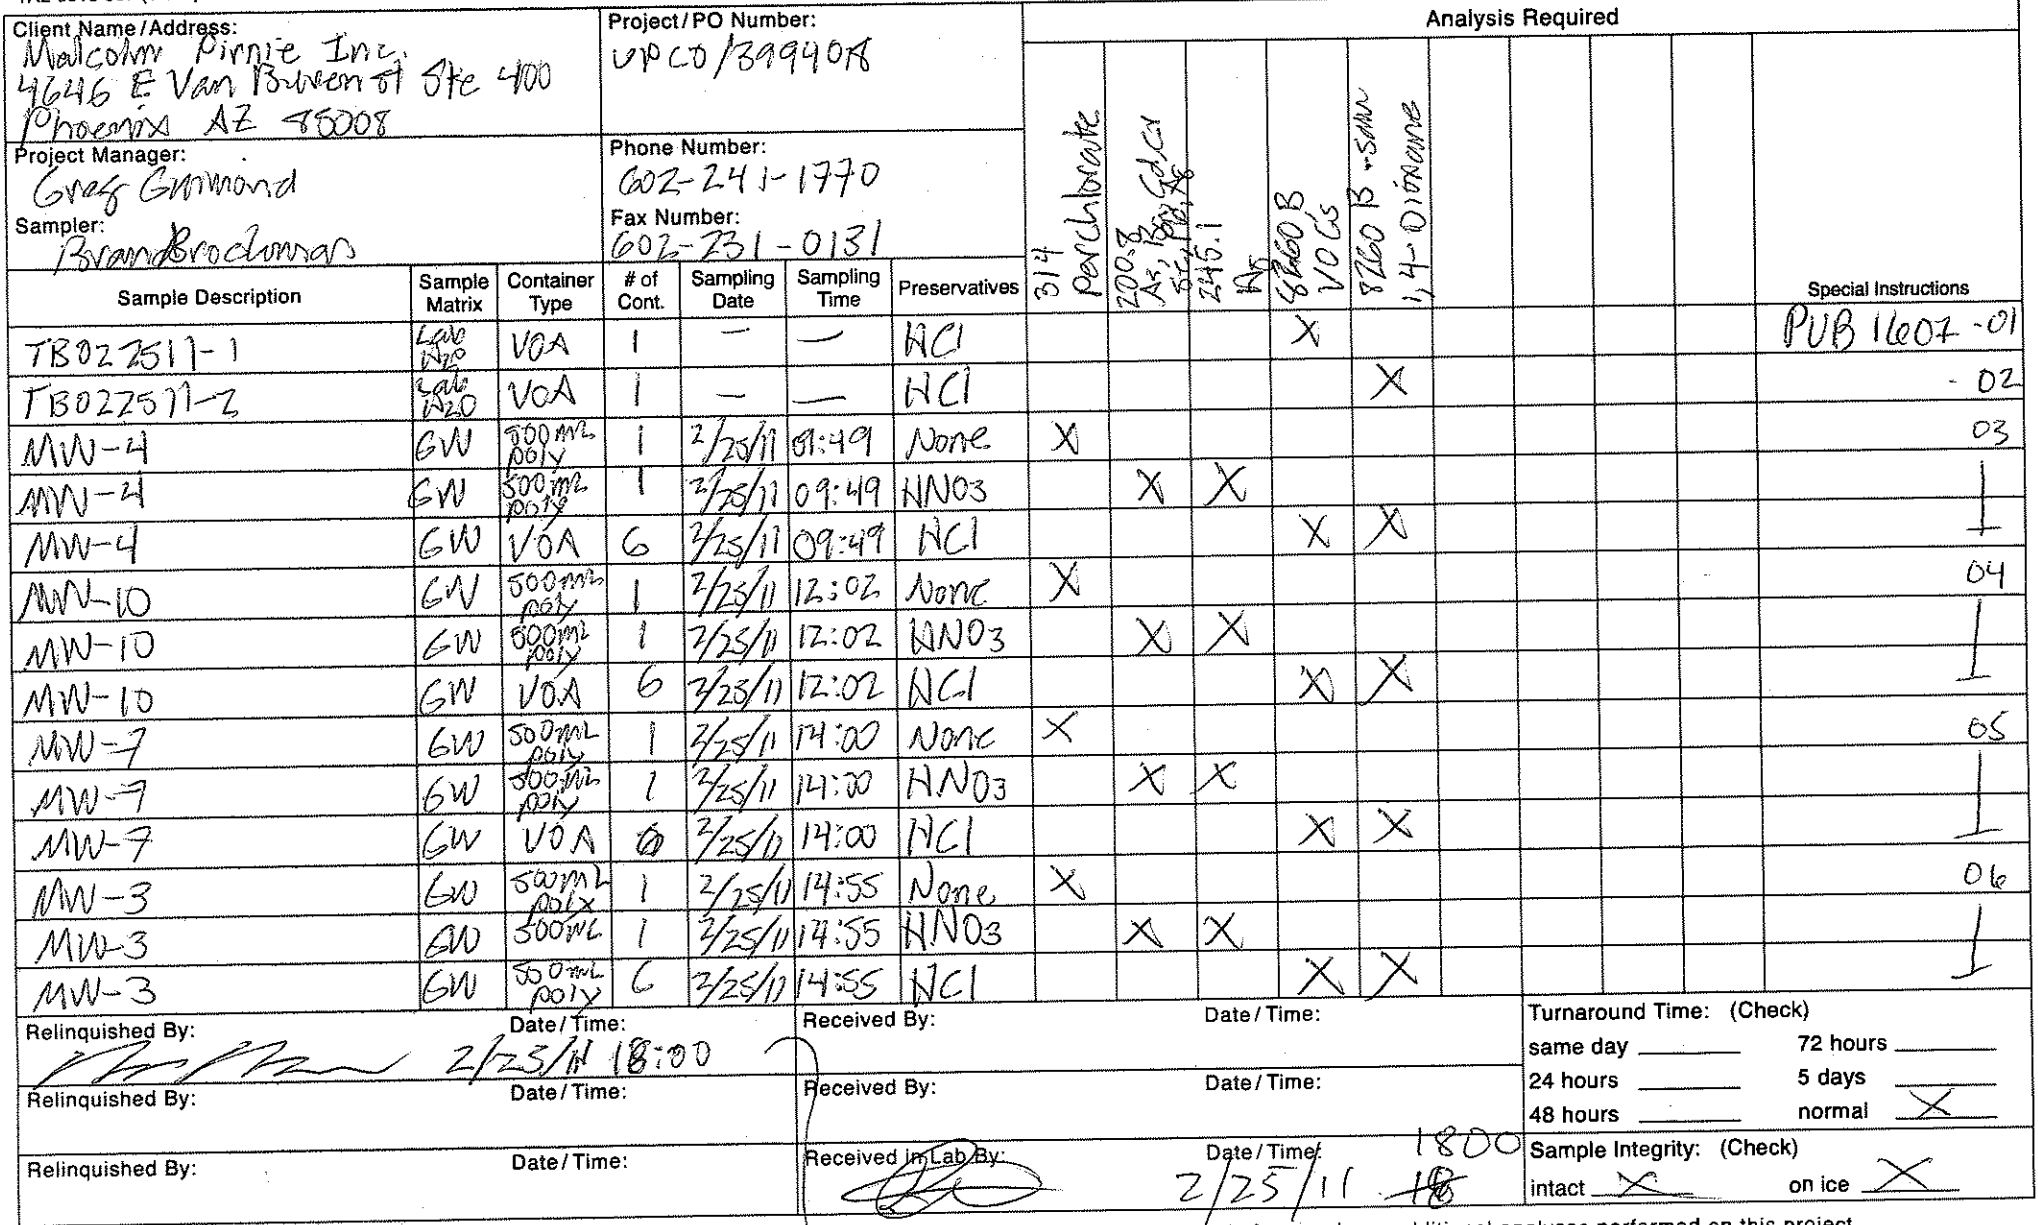 Client Name/Address:
Malcolm Pirnie Inc.
4646 E Van Buren st Ste 400
Phoenix AZ 85008
Project/PO Number:
UPCO/3994018
Analysis Required
Project Manager:
Greg
Phone Number:
602-241-1770
Sampler:
Fax Number:
602-231-0131
314 Perchlorate
200.8
245.1
8260B VOCs
8260 B -SIM 1,4-Dioxane
Sample Description Sample Matrix Container Type # of Cont. Sampling Date Sampling Time Preservatives Special Instructions
TB022511-1 Lab H20 VOA 1 — — HCl X PUB 1607-01
TB022511-2 Lab H20 VOA 1 — — HCl X -02
MW-4 GW 500 mL poly 1 2/25/11 09:49 None X 03
MW-4 GW 500 mL poly 1 2/25/11 09:49 HNO3 X X
MW-4 GW VOA 6 2/25/11 09:49 HCl X X
MW-10 GW 500 mL poly 1 2/25/11 12:02 None X 04
MW-10 GW 500 mL poly 1 2/25/11 12:02 HNO3 X X
MW-10 GW VOA 6 2/25/11 12:02 HCl X X
MW-7 GW 500 mL poly 1 2/25/11 14:00 None X 05
MW-7 GW 500 mL poly 1 2/25/11 14:00 HNO3 X X
MW-7 GW VOA 6 2/25/11 14:00 HCl X X
MW-3 GW 500 mL poly 1 2/25/11 14:55 None X 06
MW-3 GW 500 mL 1 2/25/11 14:55 HNO3 X X
MW-3 GW 500 mL poly 6 2/25/11 14:55 HCl X X
Relinquished By: Date/Time: Received By: Date/Time:
2/25/11 18:00
Relinquished By: Date/Time: Received By: Date/Time:
Relinquished By: Date/Time: Received in Lab By: Date/Time: 1800
2/25/11
Turnaround Time: (Check)
same day 72 hours
24 hours 5 days
48 hours normal X
Sample Integrity: (Check)
intact X on ice X